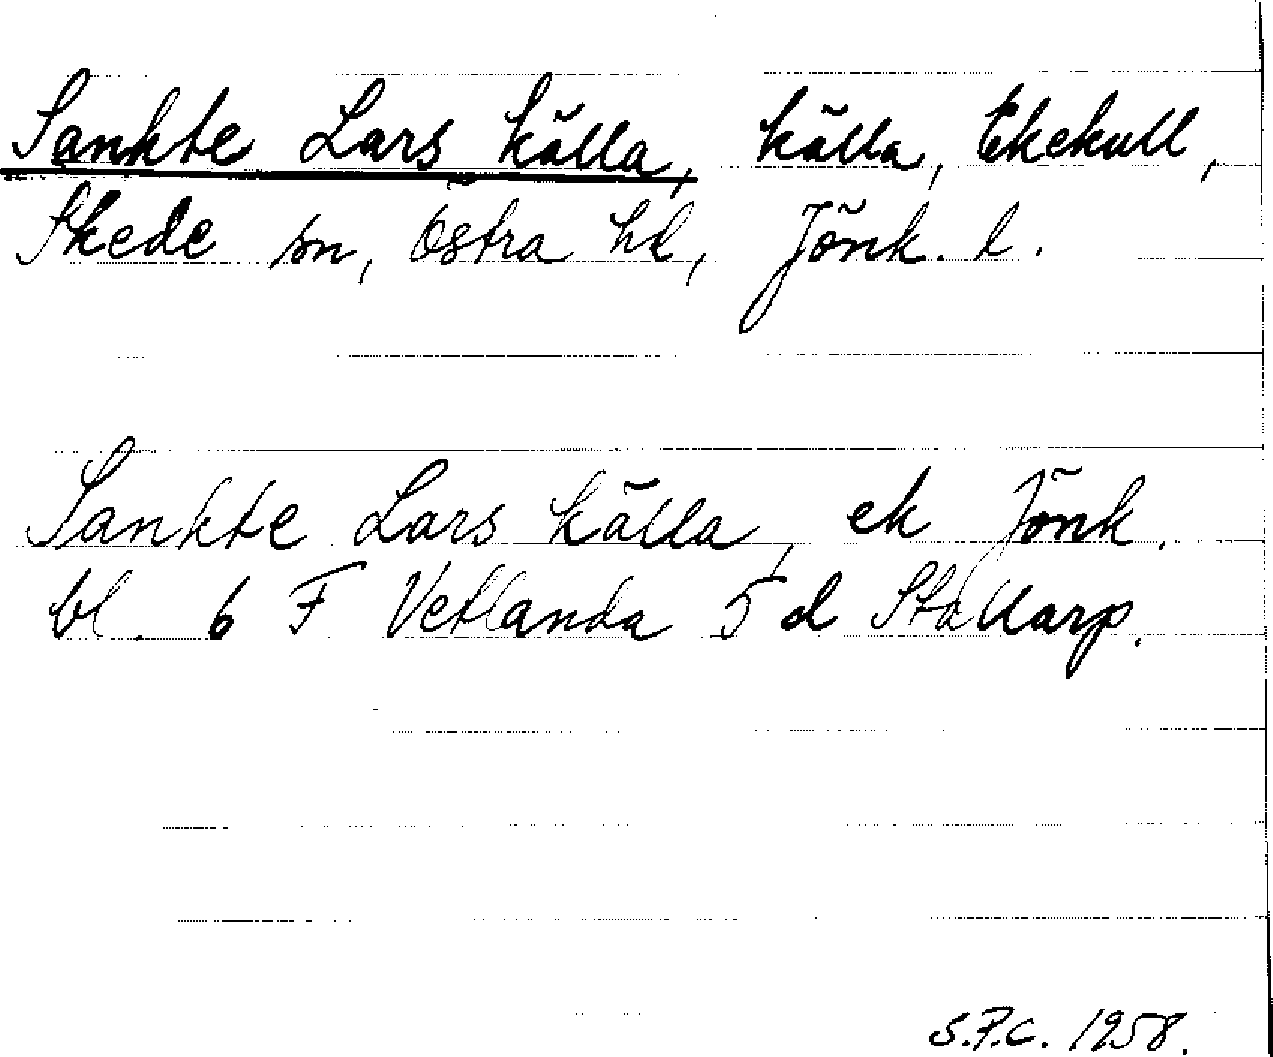 Sankte Lars källa, källa, Ekekull,
Skede sn, Östra hd, Jönk. l.
Sankte Lars källa, ek Jönk.
bl. 6 F Vetlanda 5 d Stallarp.
S.P.C. 1958.